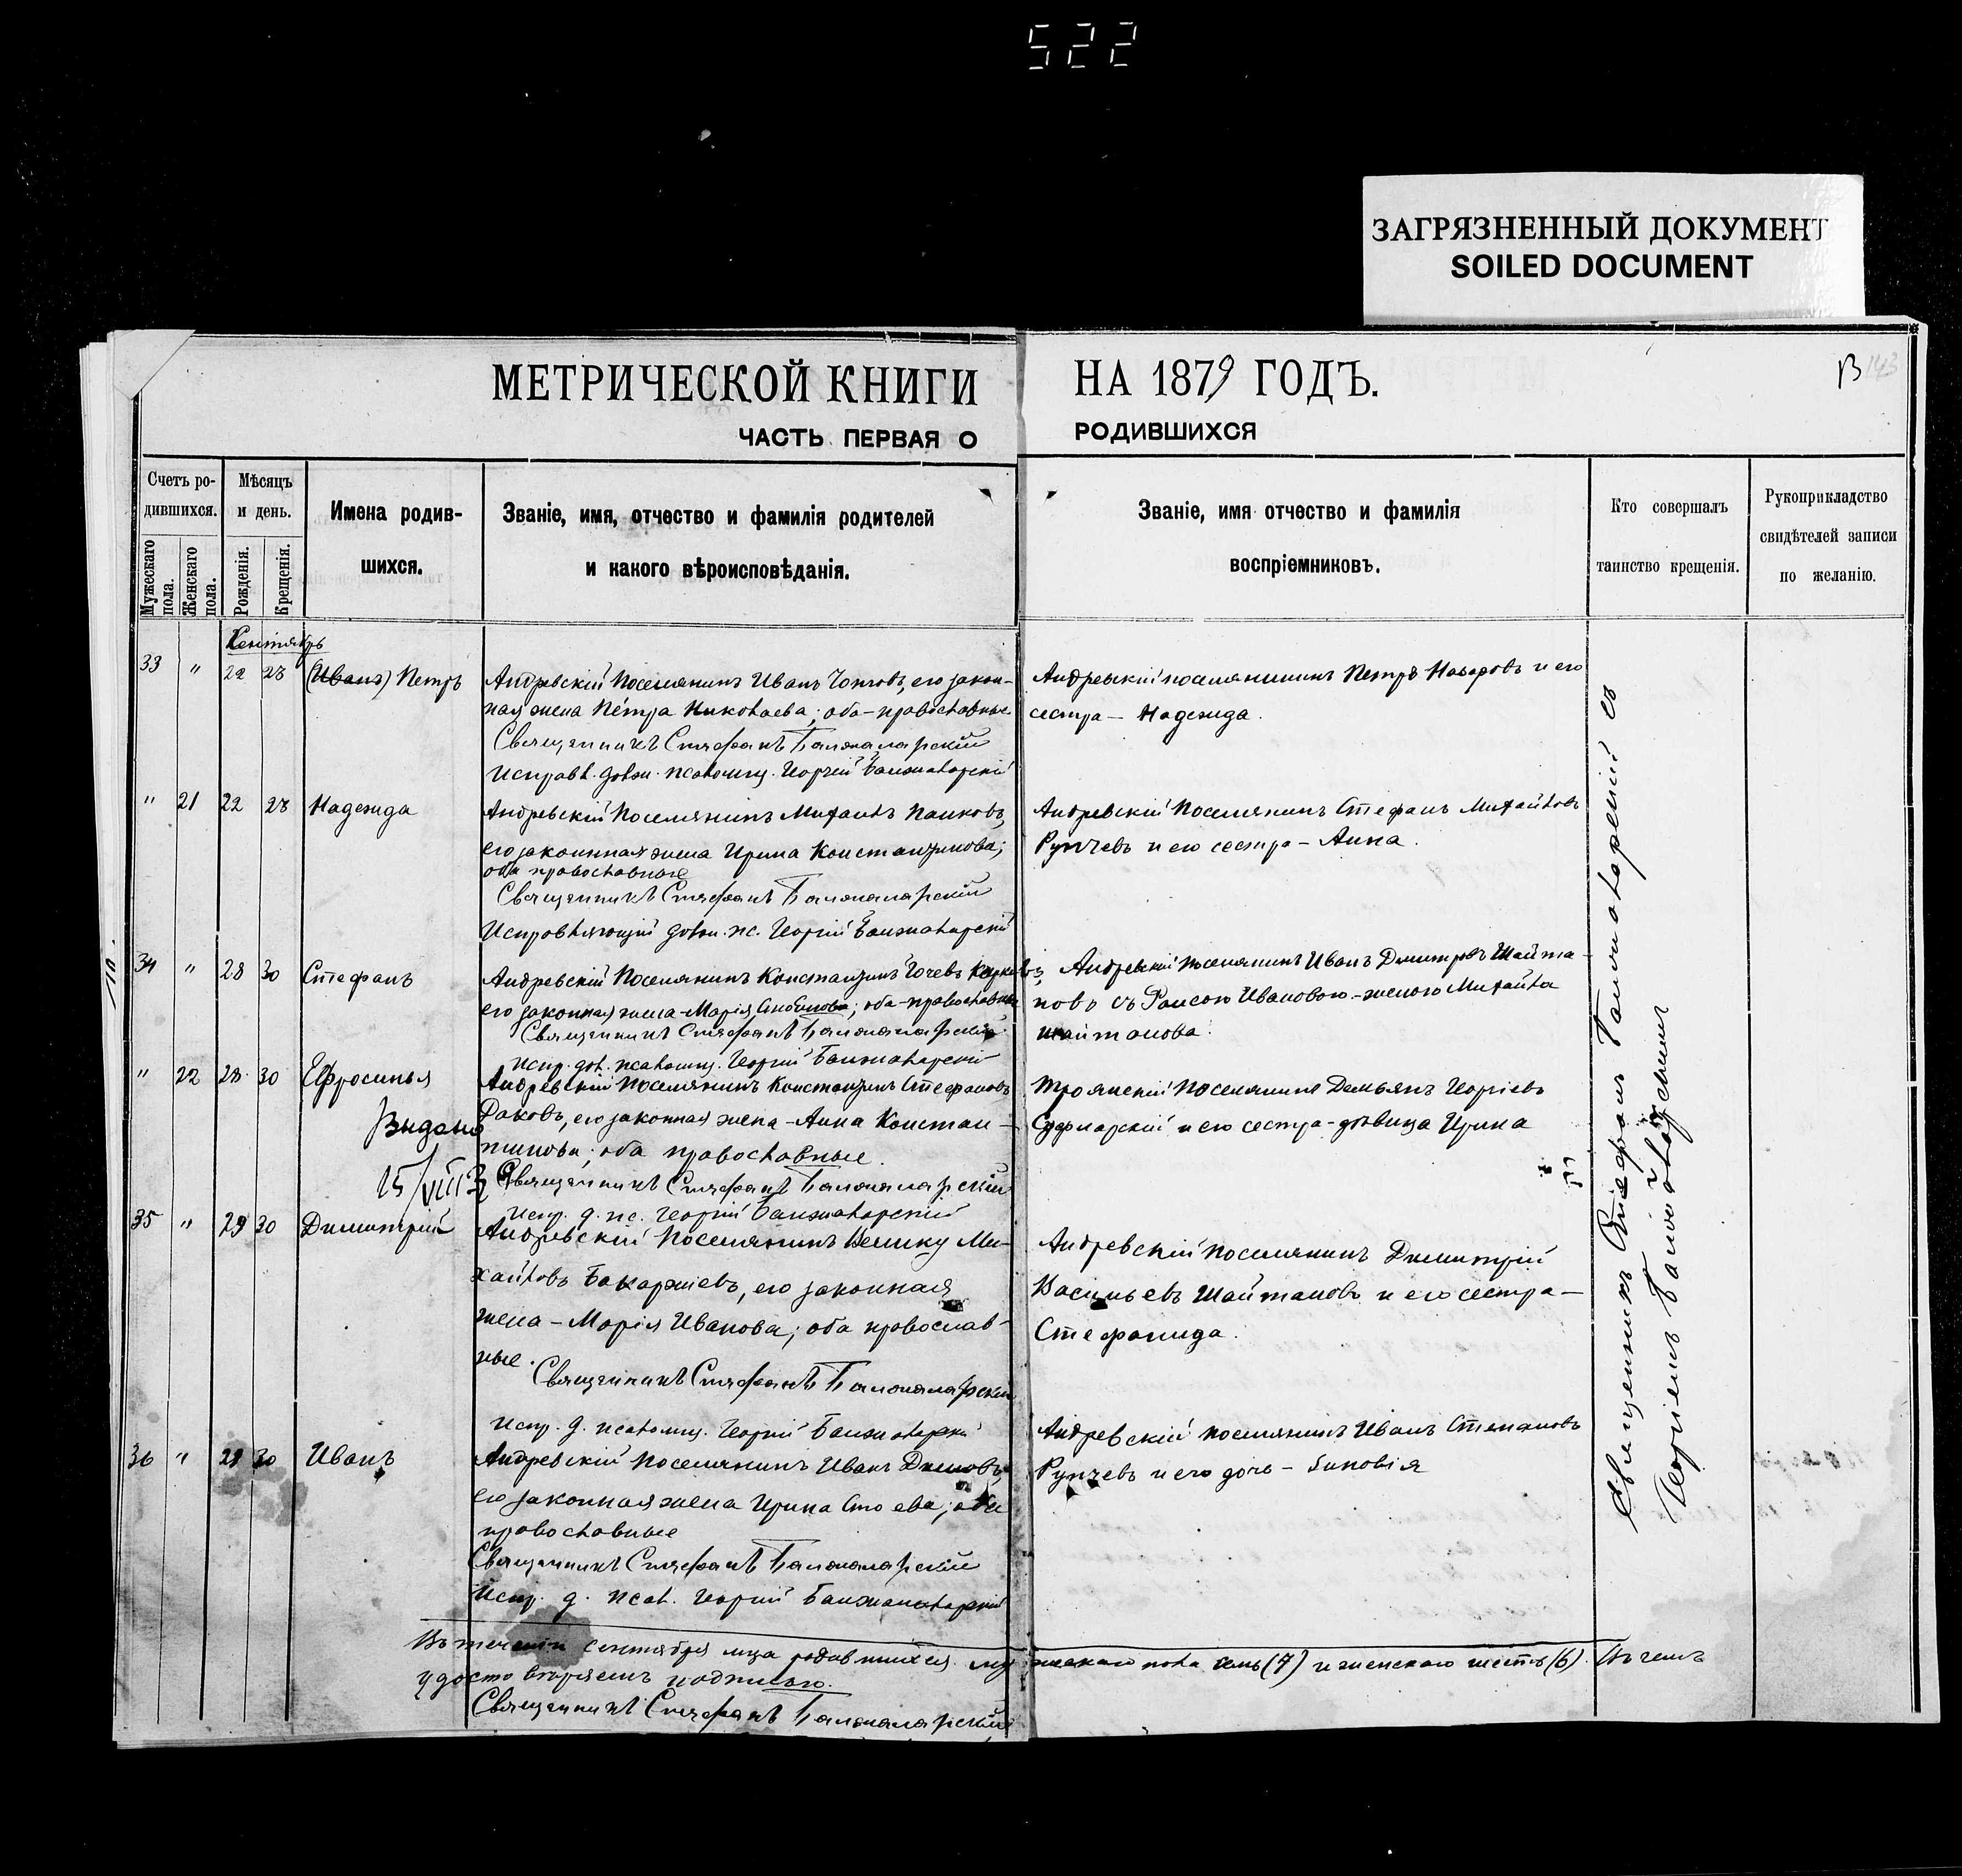 522
ЗАГРЯЗНЕННЫЙ ДОКУМЕНТ
SOILED DOCUMENT
МЕТРИЧЕСКОЙ КНИГИ НА 1879 ГОДЪ.
143
ЧАСТЬ ПЕРВАЯ О РОДИВШИХСЯ
Счетъ ро-
дившихся.
Мужескаго пола.
Женскаго пола.
Мѣсяцъ
и день.
Рожденія.
Крещенія.
Имена родив-
шихся.
Званіе, имя, отчество и фамилія родителей
и какого вѣроисповѣданія.
Званіе, имя отчество и фамилія
воспріемниковъ.
Кто совершалъ
таинство крещенія.
Рукоприкладство
свидѣтелей записи
по желанію.
Сентябрь
33 " 22 28 (Иванъ) Петръ
Андревскій Поселянинъ Иванъ его закон-
ная жена Петра Николаева; оба-православные
Священникъ Стефанъ
Исправ. долж. псаломщ. Георгій
Андревскій поселянинъ Петръ Назаровъ и его
сестра - Надежда.
" 21 22 28 Надежда
Андревскій Поселянинъ Михаилъ Панковъ,
его законная жена Ирина Константинова;
оба православные
Священникъ Стефанъ
Исправляющій долж. пс. Георгій
Андревскій Поселянинъ Стефанъ Михайловъ
Рупчевъ и его сестра - Анна.
34 " 28 30 Стефанъ
Андревскій Поселянинъ Константинъ Гочевъ
его законная жена - Марія оба-православные
Священникъ Стефанъ
Испр. дол. псаломщ. Георгій
Андревскій поселянинъ Иванъ Димитровъ Шайта-
новъ съ Раисою Ивановою - женою Михайла
Шайтанова.
" 22 28 30 Ефросинья
Выдано
15/VIII
Андревскій Поселянинъ Константинъ Стефановъ
Раковъ, его законная жена - Анна Констан-
тинова; оба православные.
Священникъ Стефанъ
Испр. д. пс. Георгій
Троянскій Поселянинъ Демьянъ Георгіевъ
и его сестра - дѣвица Ирина
35 " 29 30 Димитрій
Андревскій Поселянинъ Велику Ми-
хайловъ его законная
жена - Марія Иванова; оба православ-
ные.
Священникъ Стефанъ
Испр. д. псаломщ. Георгій
Андревскій поселянинъ Димитрій
Васильевъ Шайтановъ и его сестра -
Стефанида.
36 " 29 30 Иванъ
Андревскій Поселянинъ Иванъ Димовъ,
его законная жена Ирина Стоева; оба
православные
Священникъ Стефанъ
Испр. д. псал. Георгій
Андревскій поселянинъ Иванъ Степановъ
Рупчевъ и его дочь - Зиновія
Священникъ Стефанъ съ
Георгіемъ
Въ теченіи сентября мца родившихся мужескаго пола семь (7) и женскаго шесть (6). Въ чемъ
удостовѣряемъ подписью.
Священникъ Стефанъ